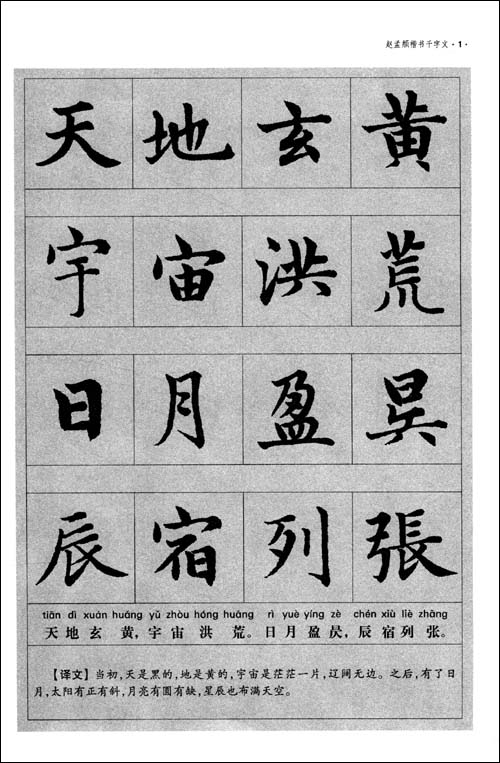 赵孟頫楷书千字文·1·
天地玄黄
宇宙洪荒
日月盈昃
辰宿列張
tiān dì xuán huáng yǔ zhòu hóng huāng rì yuè yíng zè chén xiù liè zhāng
天地玄黄，宇宙洪荒。日月盈昃，辰宿列张。
【译文】当初，天是黑的，地是黄的，宇宙是茫茫一片，辽阔无边。之后，有了日
月，太阳有正有斜，月亮有圆有缺，星辰也布满天空。